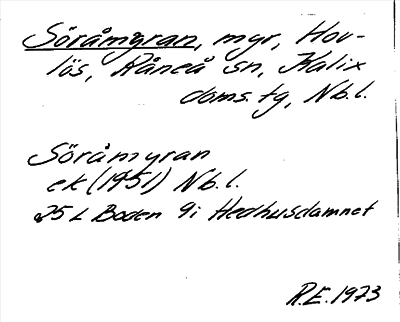 Söråmyran, myr, Hov-
lös, Råneå sn, Kalix
doms. tg, Nb.l.
Söråmyran
ek (1951) Nb.l.
25 L Boden 9i Hedhusdamnet
R.E. 1973